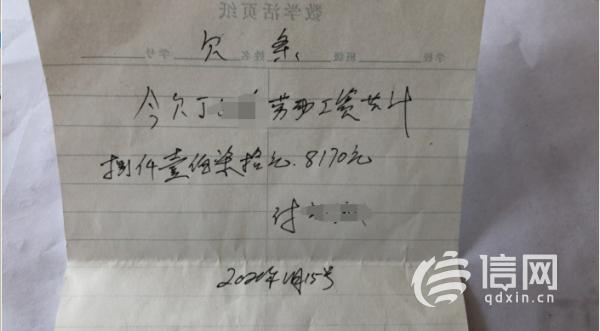 数学活页纸
学校 班级 姓名 学号
欠条
今欠丁 劳务工资共计
捌仟壹佰柒拾元.8170元
付
2020年1月15号
信网
qdxin.cn